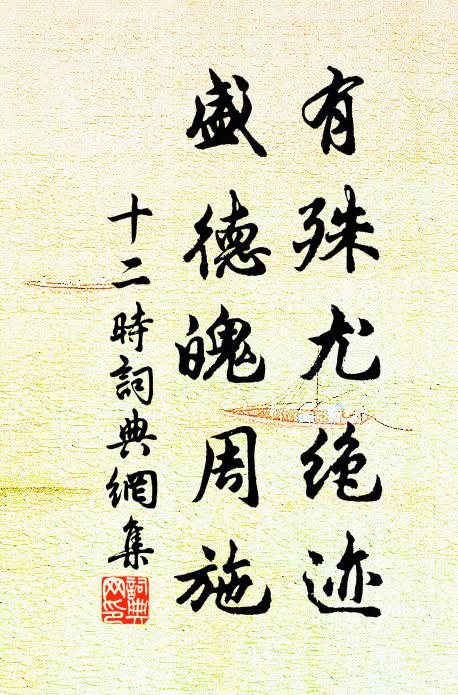 有殊尤绝迹
盛德魄周施
十二時詞典網集
詞典